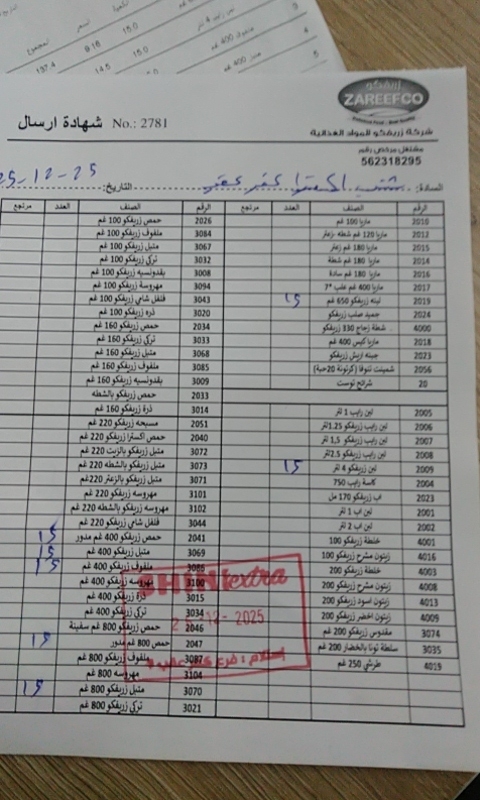 زريفكو
ZAREEFCO
شركة زريفكو للمواد الغذائية
مشتغل مرخص رقم
562318295
شهادة ارسال No.: 2781
السادة: شتي اكسترا كفر عقب التاريخ: 25-12-25
الرقم الصنف العدد مرتجع الرقم الصنف العدد مرتجع
2010 ماريا 100 غم 2026 حمص زريفكو 100 غم
2012 ماريا 120 غم شطه -زعتر 3084 ملفوف زريفكو 100 غم
2015 ماريا 180 غم زعتر 3067 متبل زريفكو 100 غم
2014 ماريا 180 غم شطة 3032 تركي زريفكو 100 غم
2016 ماريا 180 غم سادة 3008 بقدونسيه زريفكو 100 غم
2017 ماريا 400 غم علب *7 3094 مهروسة زريفكو 100 غم
2019 لبنه زريفكو 650 غم 15 3043 فلفل شامي زريفكو 100 غم
2024 جميد صلب زريفكو 3020 ذره زريفكو 100 غم
4000 شطة زجاج 330 زريفكو 2034 حمص زريفكو 160 غم
2018 ماريا كيس 400 غم 3033 تركي زريفكو 160 غم
2023 جبنه اريش زريفكو 3068 متبل زريفكو 160 غم
2056 شمينت تنوفا (كرتونة 20حبة) 3085 ملفوف زريفكو 160 غم
20 شرائح توست 3009 بقدونسيه زريفكو 160 غم
2033 حمص زريفكو بالشطه
2005 لبن رايب 1 لتر 3014 ذرة زريفكو 160 غم
2006 لبن رايب زريفكو 1.25لتر 2051 مسبحه زريفكو 220 غم
2007 لبن رايب زريفكو 1,5 لتر 2040 حمص اكسترا زريفكو 220 غم
2008 لبن رايب زريفكو 2.5لتر 3072 متبل زريفكو بالزيت 220 غم
2009 لبن زريفكو 4 لتر 15 3073 متبل زريفكو بالشطه 220غم
2004 كاسة رايب 750 3071 متبل زريفكو بالزعتر 220غم
2023 اب زريفكو 170 مل 3101 مهروسه زريفكو 220 غم
2001 لبن اب 1 لتر 3102 مهروسه زريفكو بالشطه 220 غم
2002 لبن اب 2 لتر 3044 فلفل شامي زريفكو 220 غم
4001 خلطة زريفكو 100 2041 حمص زريفكو 400 غم مدور 15
4016 زيتون مشرح زريفكو 100 3069 متبل زريفكو 400 غم 15
4003 خلطة زريفكو 200 3086 ملفوف زريفكو 400 غم 15
4008 زيتون مشرح زريفكو 200 3100 مهروسه زريفكو 400 غم
4013 زيتون اسود زريفكو 200 3015 ذرة زريفكو 400 غم
4009 زيتون اخضر زريفكو 200 3034 تركي زريفكو 400 غم
3074 مقدوس زريفكو 200 غم 2046 حمص زريفكو 800 غم سفينة
3035 سلطة تونا بالخضار 200 غم 2047 حمص زريفكو 800 غم مدور 15
4019 طرشي 250 غم 3087 ملفوف زريفكو 800 غم
3104 مهروسه 800 غم
3070 متبل زريفكو 800 غم 15
3021 تركي زريفكو 800 غم
extra
12- 2025